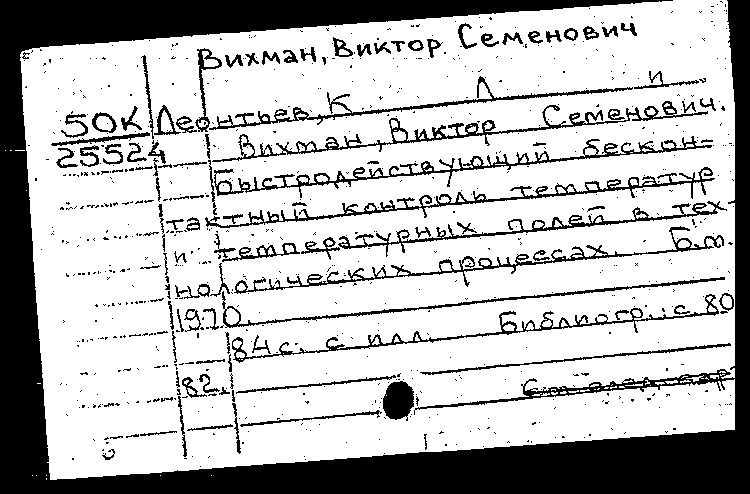 Вихман, Виктор Семенович
50К Леонтьев, К Л и
25524 Вихман, Виктор Семенович.
Быстродействующий бескон-
тактный контроль температур
и температурных полей в тех-
нологических процессах. Б.м.
1970.
84 с. с илл. Библиогр.: с. 80
82.
См след кар